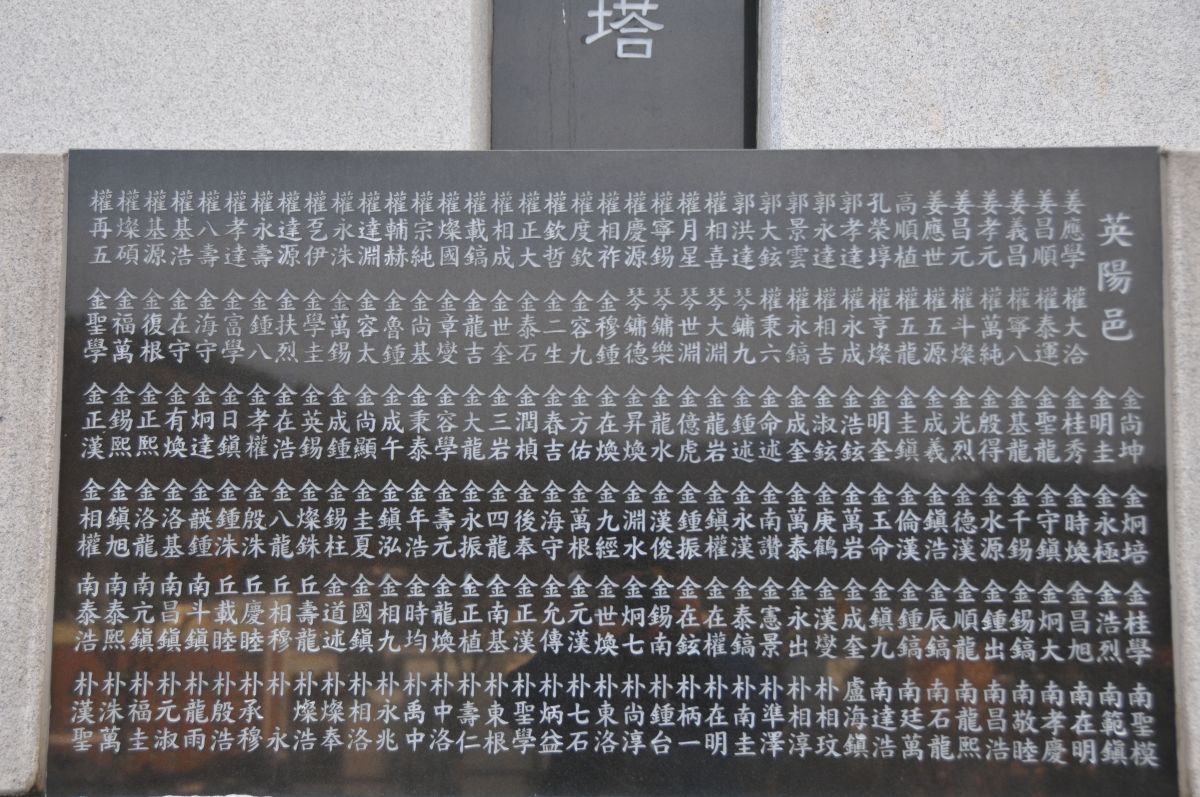 塔
英陽邑
姜應學 姜昌順 姜義昌 姜孝元 姜昌元 姜應世 高順植 孔榮埻 郭孝達 郭永達 郭景雲 郭大鉉 郭洪達 權相喜 權月星 權寧錫 權慶源 權相祚 權度欽 權欽哲 權正大 權相成 權載鎬 權燦國 權宗純 權輔赫 權達淵 權永洙 權乭伊 權達源 權永壽 權孝達 權八壽 權基浩 權基源 權燦碩 權再五
權大洽 權泰運 權寧八 權萬純 權斗燦 權五源 權五龍 權亨燦 權永成 權相吉 權永鎬 權秉六 琴鏞九 琴大淵 琴世淵 琴鏞樂 琴鏞德 金穆鍾 金容九 金二生 金泰石 金世奎 金龍吉 金章燮 金尚基 金魯鍾 金容太 金萬錫 金學圭 金扶烈 金鍾八 金富學 金海守 金在守 金復根 金福萬 金聖學
金尚坤 金明圭 金桂秀 金聖龍 金基龍 金殷得 金光烈 金成義 金圭鎭 金明奎 金浩鉉 金淑鉉 金成奎 金命述 金鍾述 金龍岩 金億虎 金龍水 金昇煥 金在煥 金方佑 金春吉 金潤楨 金三岩 金大龍 金容學 金秉泰 金成午 金尚顯 金成鍾 金英錫 金在浩 金孝權 金日鎭 金炯達 金有煥 金正熙 金錫熙 金正漢
金炯培 金永極 金時煥 金守鎭 金千錫 金水源 金德漢 金鎭浩 金倫漢 金玉命 金萬岩 金庚鶴 金萬泰 金南讚 金永漢 金鎭權 金鍾振 金漢俊 金淵水 金九經 金萬根 金海守 金後奉 金四龍 金永振 金壽元 金年浩 金鎭泓 金圭夏 金錫柱 金燦銖 金八龍 金殷洙 金鍾洙 金謨鍾 金洛基 金洛龍 金鎭旭 金相權
金桂學 金浩烈 金昌旭 金炯大 金錫鎬 金鍾出 金順龍 金辰鎬 金鍾鎬 金鎭九 金成奎 金漢燮 金永出 金憲景 金泰鎬 金在權 金在鉉 金錫南 金炯七 金世煥 金元漢 金允傳 金正漢 金南基 金正植 金龍煥 金時均 金相九 金國鎭 金道述 丘壽龍 丘相穆 丘慶睦 丘載睦 南斗鎭 南昌鎭 南亢鎭 南泰熙 南泰浩
南聖模 南範鎭 南在明 南孝慶 南敬睦 南昌浩 南龍熙 南石龍 南廷萬 南達浩 盧海鎭 朴相玟 朴相淳 朴準澤 朴南圭 朴在明 朴柄一 朴鍾台 朴尚淳 朴東洛 朴七石 朴炳益 朴聖學 朴東根 朴壽仁 朴中洛 朴禹中 朴永兆 朴相洛 朴燦奉 朴燦浩 朴永 朴承穆 朴殷浩 朴龍雨 朴元淑 朴福圭 朴洙萬 朴漢聖